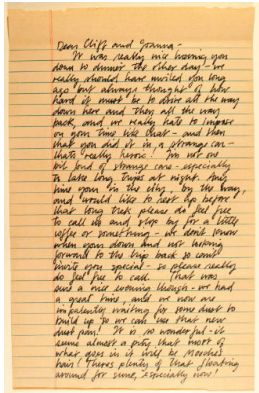 Dear Cliff and Joanna -
It was really nice having you
down to dinner the other day - we
really should have invited you long
ago but always thought of how
hard it must be to drive all the way
down here and then all the way
back, and we really hate to impose
on your time like that - and then
that you did it in a strange car -
thats really heroic! I'm not one
fond of strange cars - especially
to take long trips at night. Any
time your in the city, by the way,
and would like to rest up before
that long trek please do feel free
to call us and stop by for a little
coffee or something - we don't know
when your down and not looking
forward to the trip back so cant
invite you special - so please really
do feel free to call. That was
sure a nice evening though - we had
a great time, and we now are
impatiently waiting for some dust to
build up so we can use that new
dust pan! It is so wonderful - it
seems almost a pity that most of
what goes in it will be
hairs! Theres plenty of that floating
around for sure, especially now!